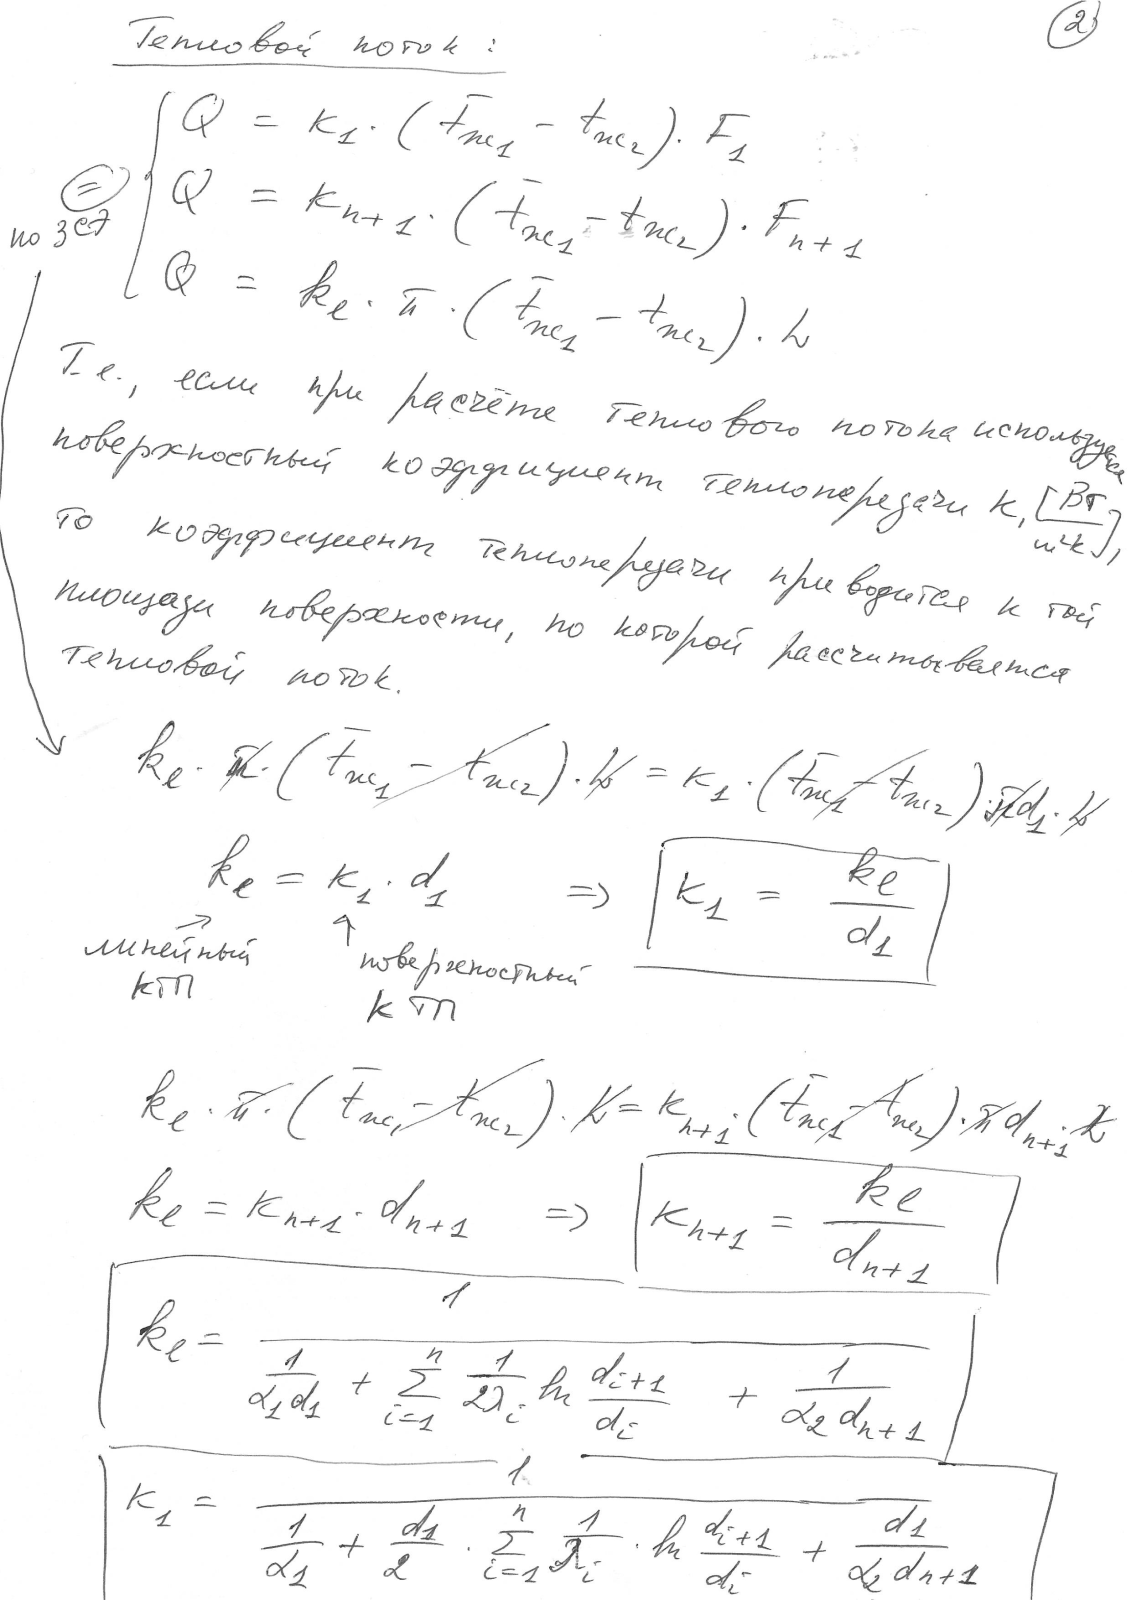 2
Тепловой поток:
Q = k₁·(t̄ж₁ − tж₂)·F₁
Q = kₙ₊₁·(t̄ж₁ − tж₂)·Fₙ₊₁
=
по ЗСЭ
Q = kₗ·π·(t̄ж₁ − tж₂)·L
Т.е., если при расчёте теплового потока используется
поверхностный коэффициент теплопередачи k, [Вт/м²K],
то коэффициент теплопередачи приводится к той
площади поверхности, по которой рассчитывается
тепловой поток.
kₗ·π·(t̄ж₁ − tж₂)·L = k₁·(t̄ж₁ − tж₂)·πd₁·L
kₗ = k₁·d₁ => k₁ = kₗ/d₁
линейный КТП
поверхностный КТП
kₗ·π·(t̄ж₁ − tж₂)·L = kₙ₊₁·(t̄ж₁ − tж₂)·πdₙ₊₁·L
kₗ = kₙ₊₁·dₙ₊₁ => kₙ₊₁ = kₗ/dₙ₊₁
kₗ = 1/(1/(α₁d₁) + Σᵢ₌₁ⁿ 1/(2λᵢ) ln dᵢ₊₁/dᵢ + 1/(α₂dₙ₊₁))
k₁ = 1/(1/α₁ + d₁/2 · Σᵢ₌₁ⁿ 1/λᵢ · ln dᵢ₊₁/dᵢ + d₁/(α₂dₙ₊₁))